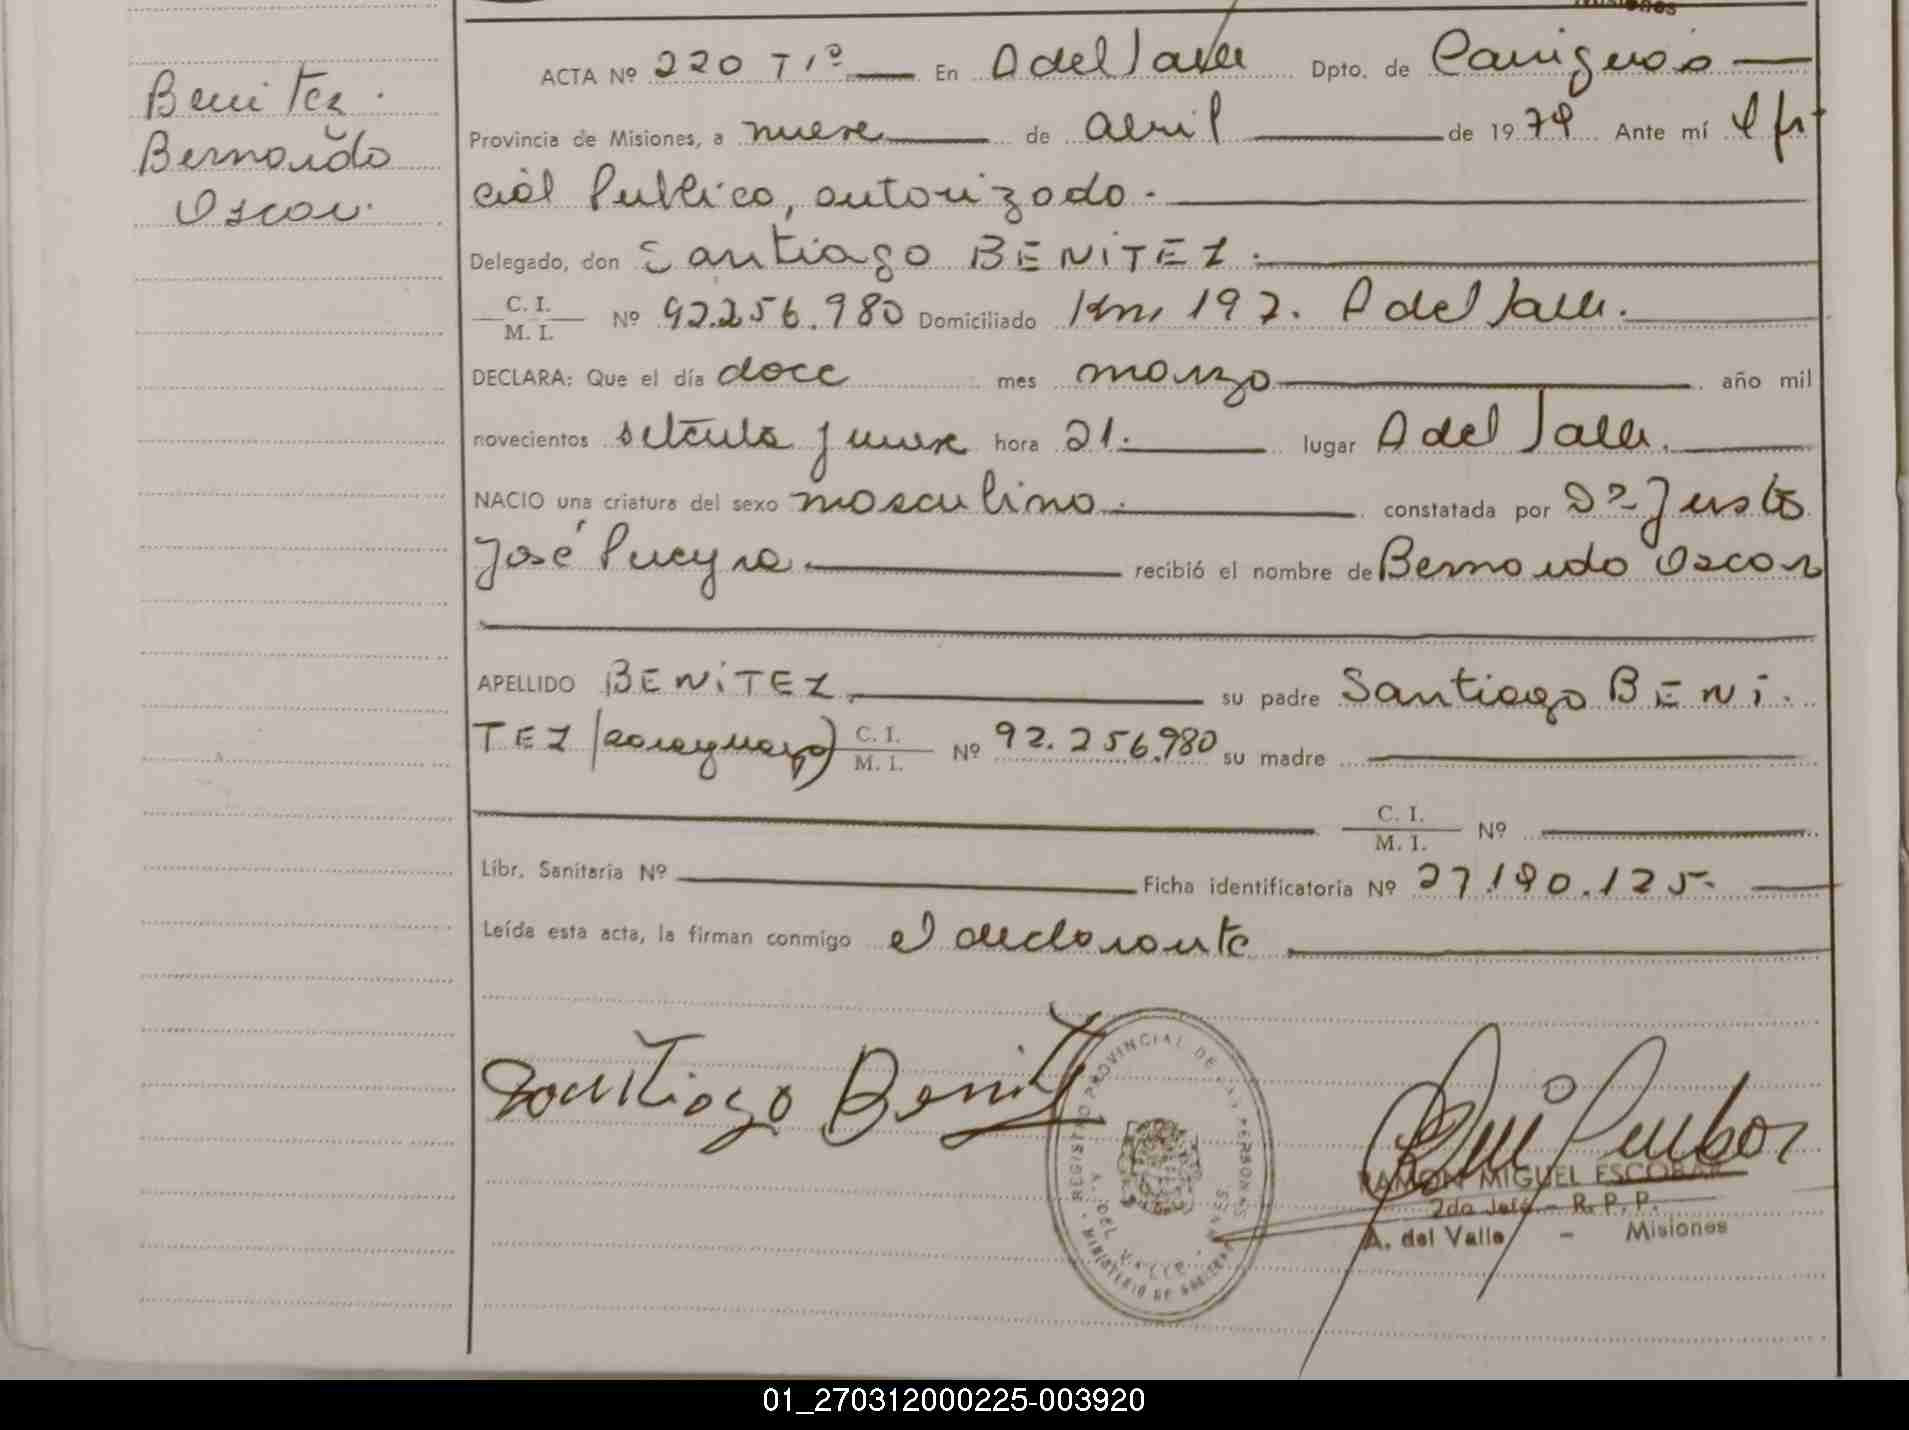 Misiones
ACTA Nº 220 Tº 1º En A del Valle Dpto. de Cainguás
Benitez.
Provincia de Misiones, a nueve de abril de 1979 Ante mí Ofi
Bernardo
cial Publico, autorizado.
Oscar.
Delegado, don Santiago BENiTEZ.
C. I.
M. I.
Nº 92.256.980 Domiciliado Km, 197. A del Valle.
DECLARA: Que el día doce mes marzo año mil
novecientos setenta y nueve hora 21. lugar A del Valle.
NACIO una criatura del sexo masculino. constatada por Dº Justo
José Pucyra recibió el nombre de Bernardo Oscar
APELLIDO BENiTEZ, su padre Santiago BENi
TEZ (paraguayo) C. I.
M. I.
Nº 92.256.980 su madre
C. I.
M. I.
Nº
Libr. Sanitaria Nº Ficha identificatoria Nº 27.190.125-
Leída esta acta, la firman conmigo el declarante
Santiago Benitez
REGISTRO PROVINCIAL DE LAS PERSONAS
A. DEL VALLE
MINISTERIO DE GOBIERNO
MNES
RAMON MIGUEL ESCOBAR
2do Jefe - R. P. P.
A. del Valle - Misiones
01_270312000225-003920